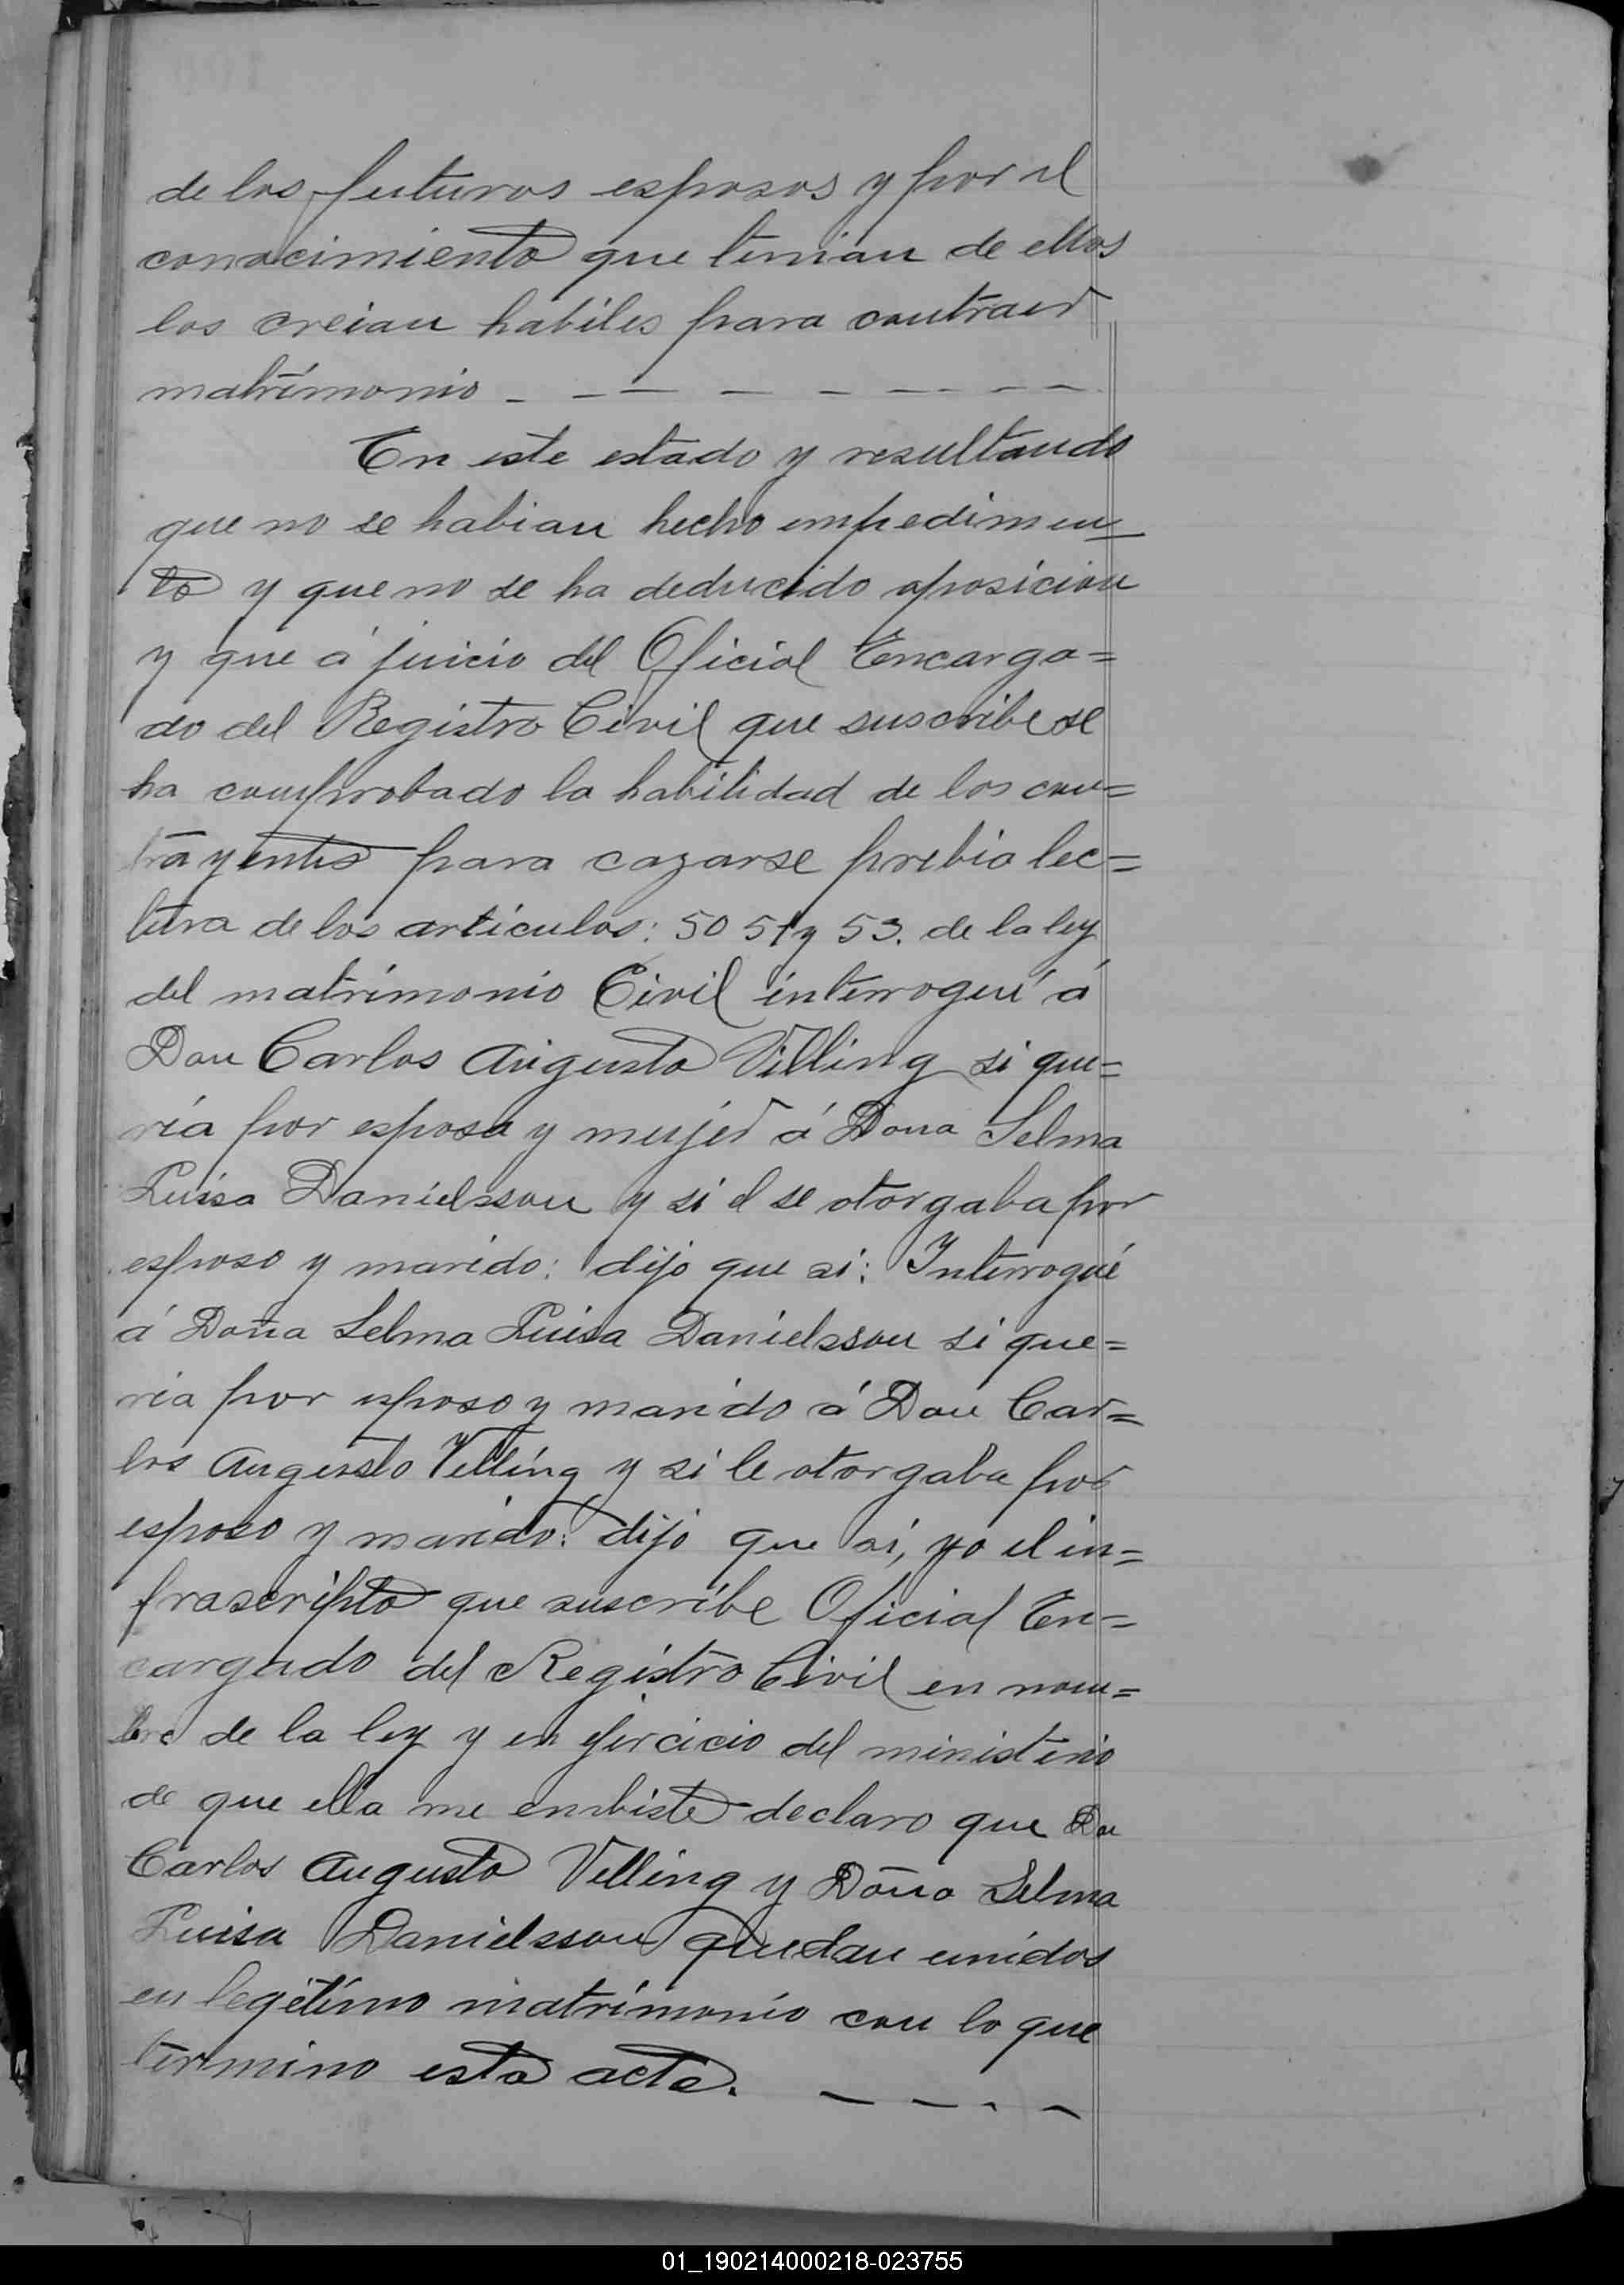 de los futuros esposos y por el
conocimiento que tenian de ellos
los creian habiles para contraer
matrimonio - - - - - - - - -
En este estado y resultando
que no se habian hecho impedimen_
to y que no se ha deducido oposicion
y que á juicio del Oficial Encarga=
do del Registro Civil que suscribe se
ha comprobado la habilidad de los con=
trayentes para cazarse prebia lec=
tura de los artículos: 50 51 y 53. de la ley
del matrimonio Civil interrogué á
Don Carlos Augusto Villing si que=
ría por esposa y mujer á Dona Selma
Luisa Danielsson y si el se otorgaba por
esposo y marido: dijo que si: Interrogué
á Doña Selma Luisa Danielsson si que=
ria por esposo y marido á Don Car=
los Augusto Velling y si le otorgaba por
esposo y marido: dijo que si, yo el in=
frascripto que suscribe Oficial En=
cargado del Registro Civil en nom=
bre de la ley y en ejercicio del ministerio
de que ella me enbiste declaro que Don
Carlos Augusto Velling y Doña Selma
Luisa Danielsson quedan unidos
en legítimo matrimonio con lo que
termino esta acta. - - - -
01_190214000218-023755